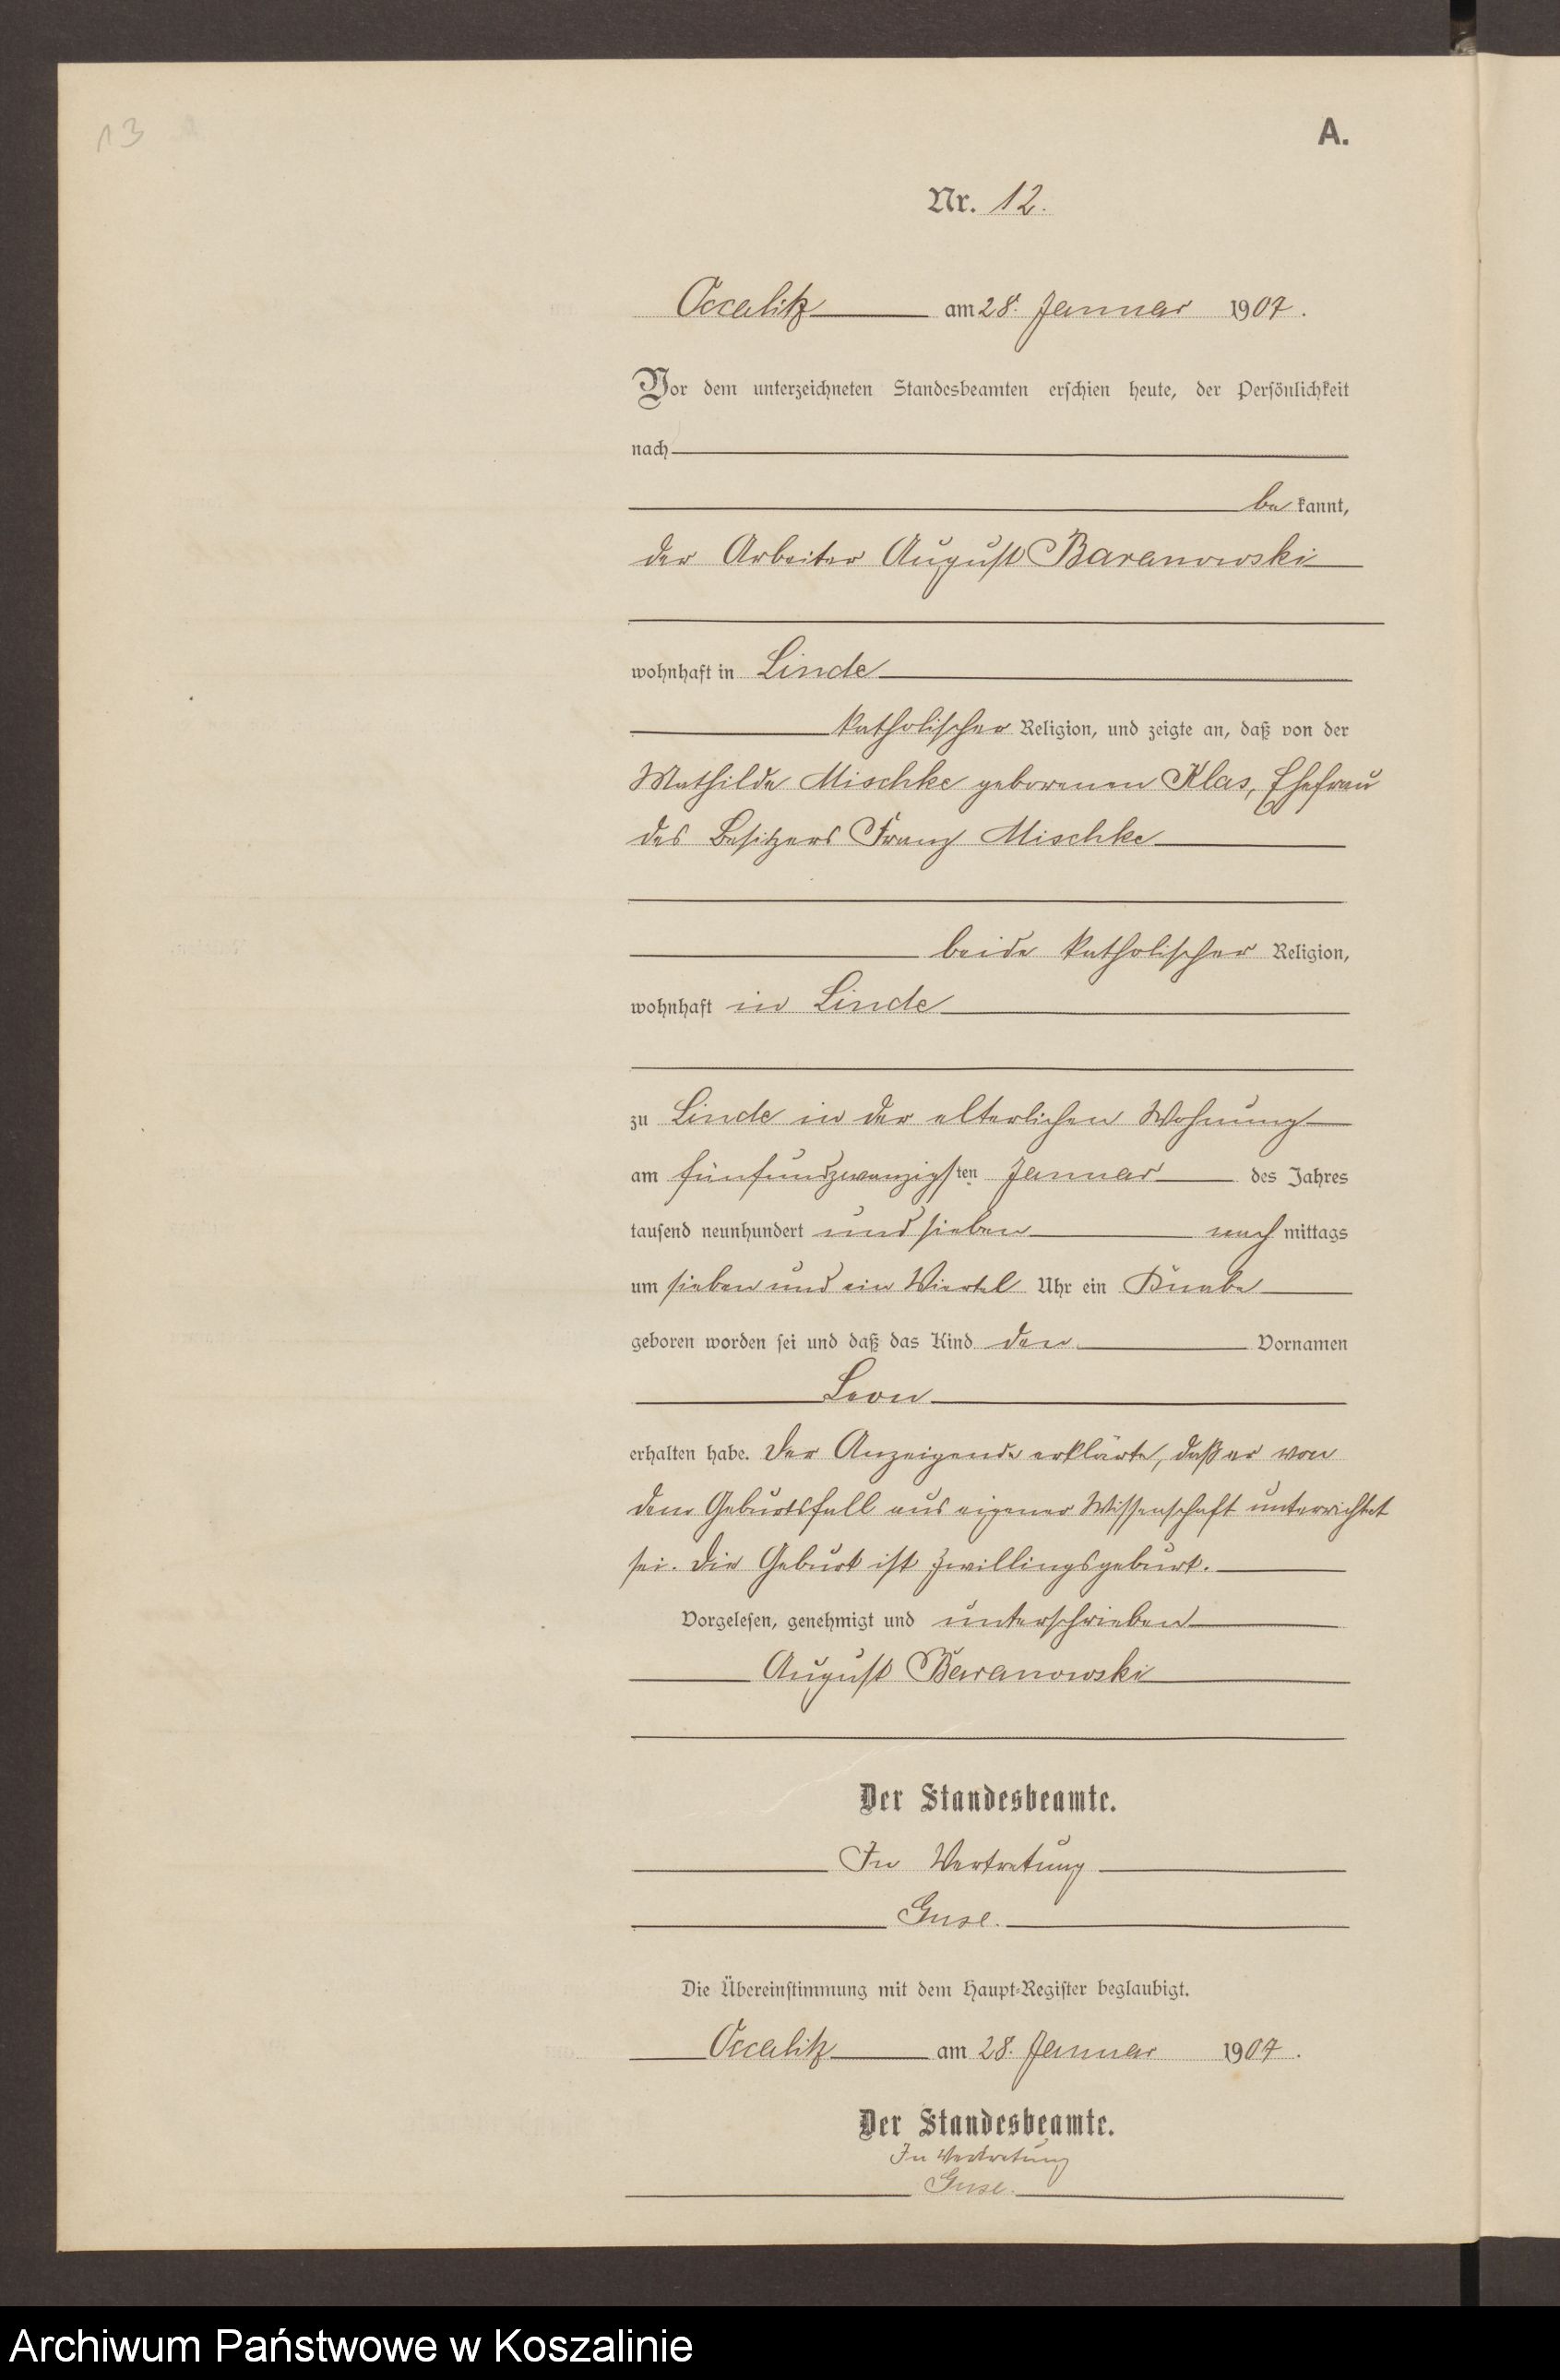 13
A.
Nr. 12.
Occalitz am 28. Januar 1907.
Vor dem unterzeichneten Standesbeamten erschien heute, der Persönlichkeit
nach
be kannt,
der Arbeiter August Baranowski
wohnhaft in Linde
katholischer Religion, und zeigte an, daß von der
Mathilde Mischke geborenen Klas, Ehefrau
des Besitzers Franz Mischke
beide katholischer Religion,
wohnhaft in Linde
zu Linde in der elterlichen Wohnung
am fünfundzwanzigsten Januar des Jahres
tausend neunhundert und sieben nach mittags
um sieben und ein Viertel Uhr ein Knabe
geboren worden sei und daß das Kind den Vornamen
Leon
erhalten habe. Der Anzeigende erklärte, daß er von
dem Geburtsfall aus eigener Wissenschaft unterrichtet
sei. Die Geburt ist Zwillingsgeburt.
Vorgelesen, genehmigt und unterschrieben
August Baranowski
Der Standesbeamte.
In Vertretung
Guse.
Die Übereinstimmung mit dem Haupt-Register beglaubigt.
Occalitz am 28. Januar 1907.
Der Standesbeamte.
In Vertretung
Guse.
Archiwum Państwowe w Koszalinie